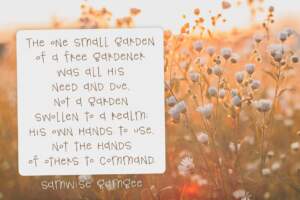 The one small garden
of a free gardener
was all his
need and due,
not a garden
swollen to a realm;
his own hands to use,
not the hands
of others to command.
Samwise Gamgee